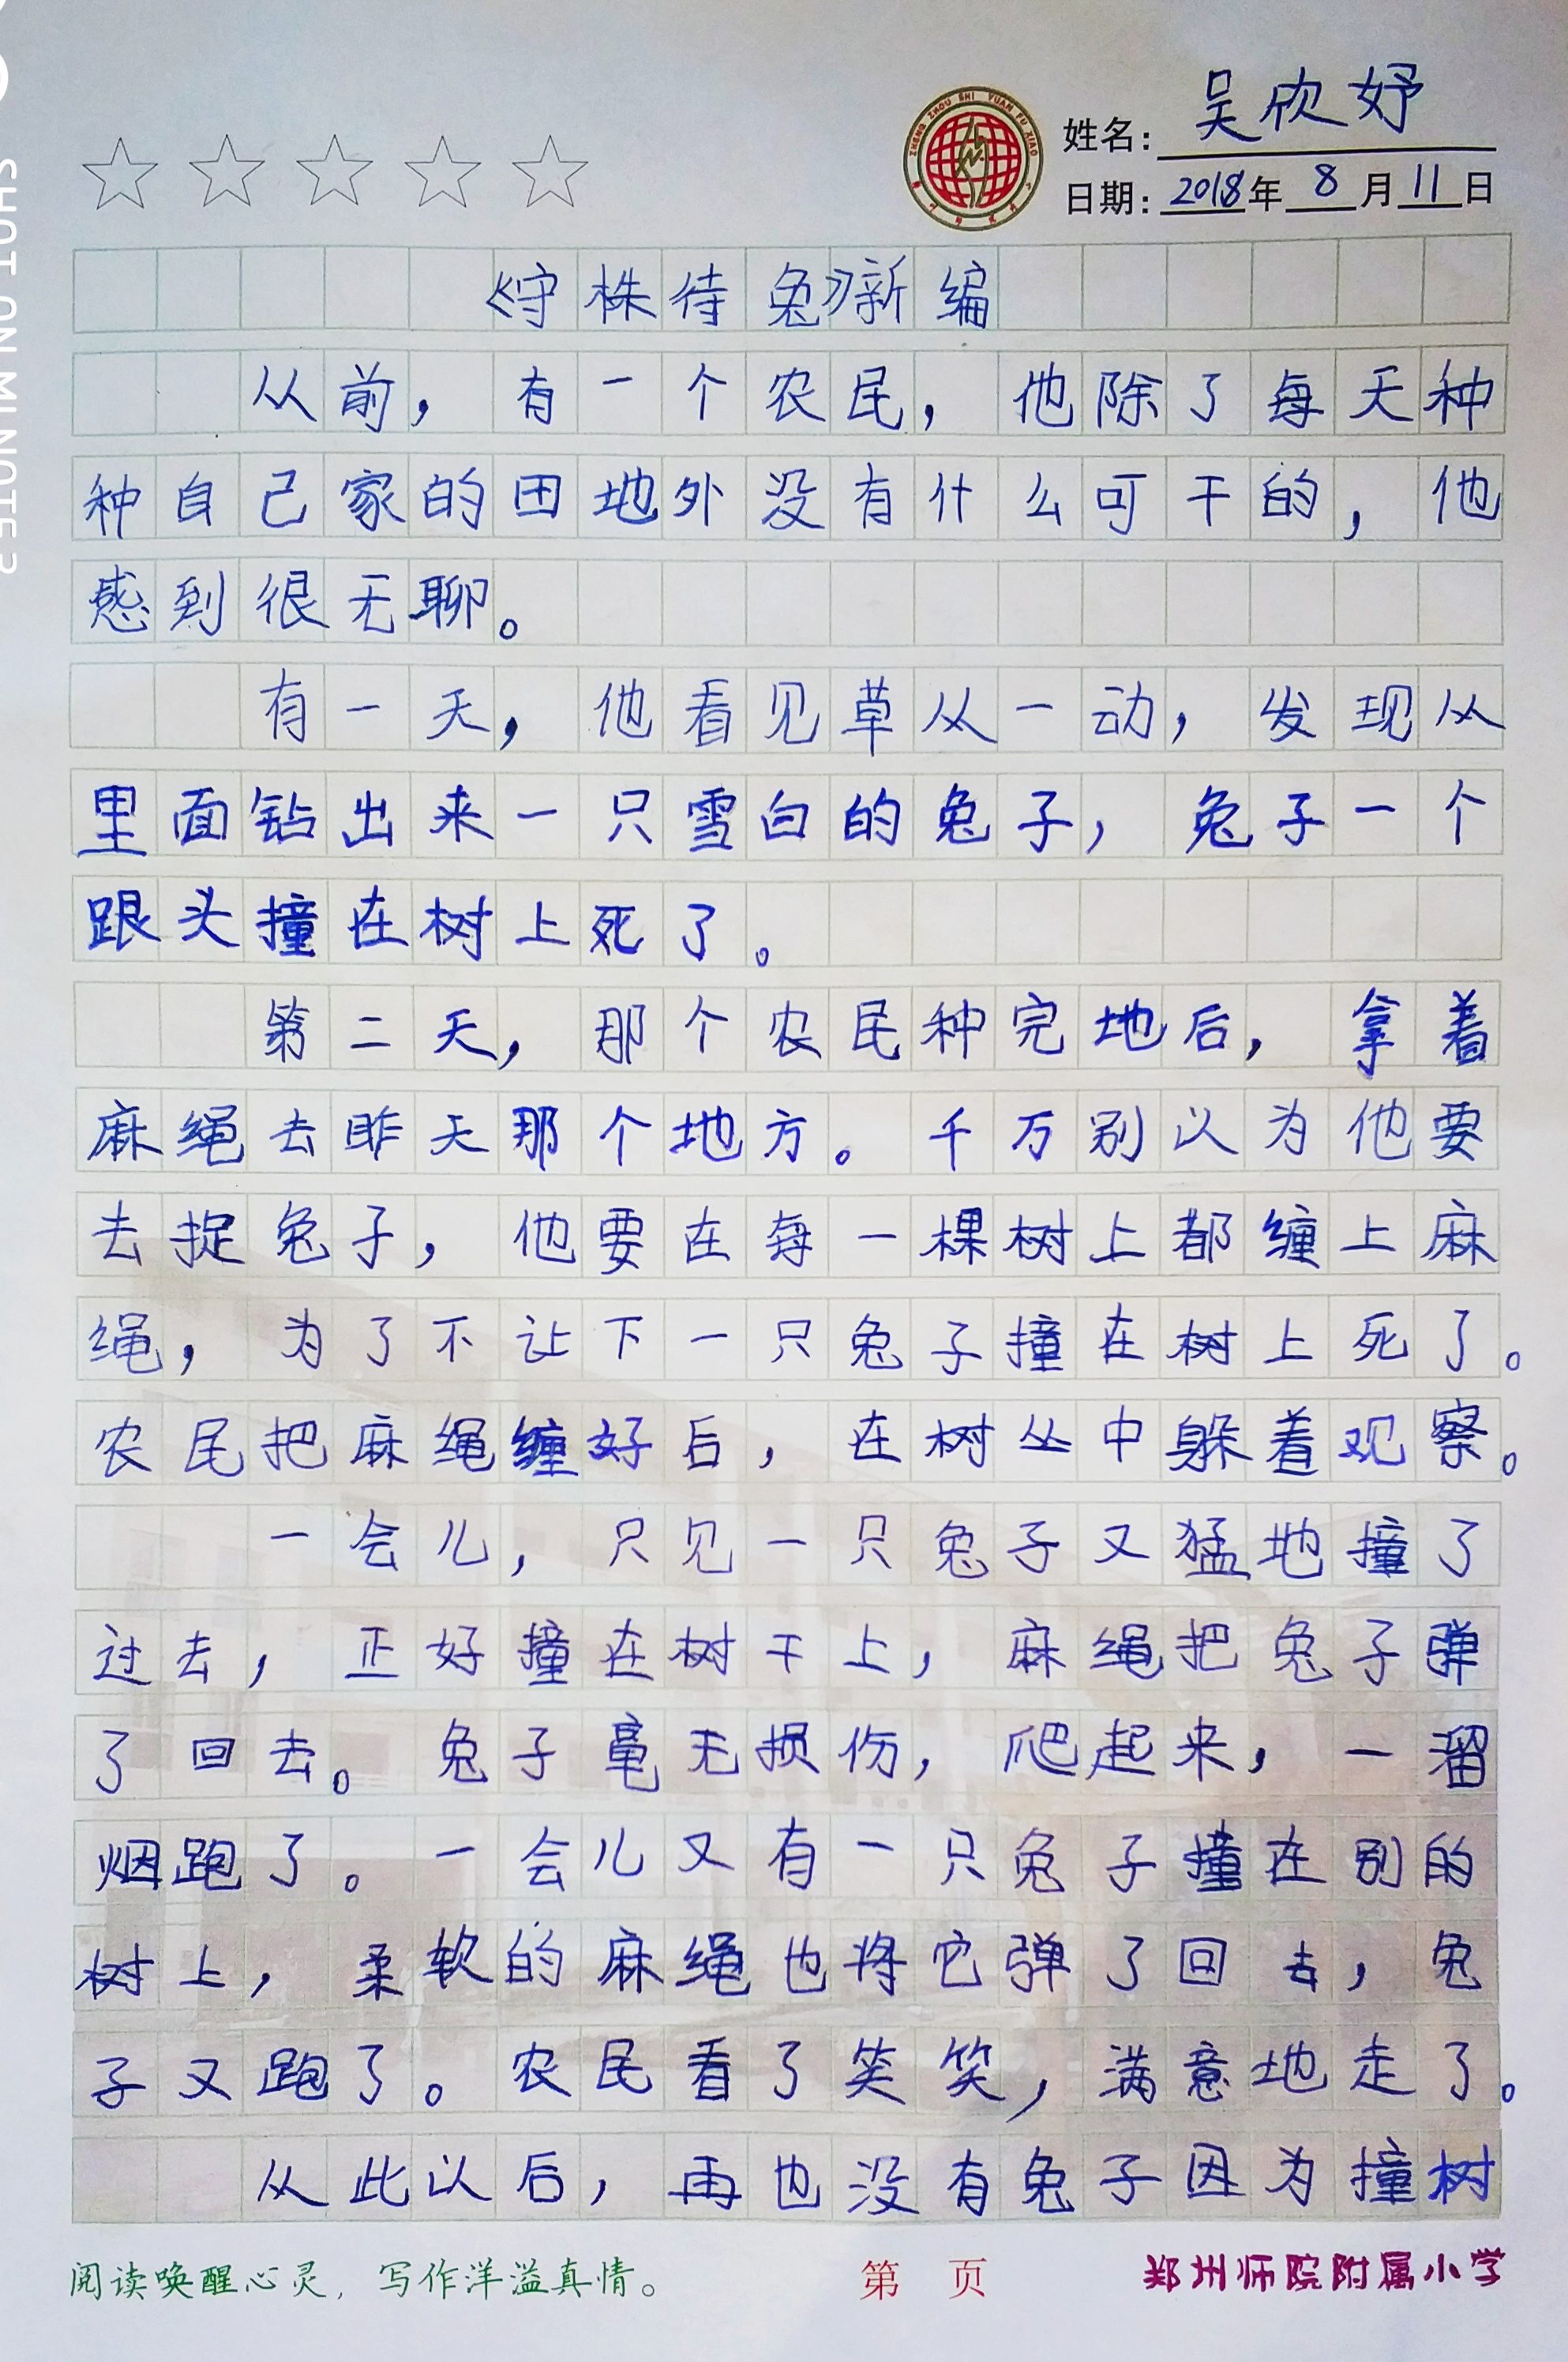 SHOT ON MI NOTE 3
ZHENG ZHOU SHI YUAN FU XIAO
姓名: 吴欣妤
日期: 2018年 8 月 11 日
《守株待兔》新编
从前，有一个农民，他除了每天种
种自己家的田地外没有什么可干的，他
感到很无聊。
有一天，他看见草从一动，发现从
里面钻出来一只雪白的兔子，兔子一个
跟头撞在树上死了。
第二天，那个农民种完地后，拿着
麻绳去昨天那个地方。千万别以为他要
去捉兔子，他要在每一棵树上都缠上麻
绳，为了不让下一只兔子撞在树上死了。
农民把麻绳缠好后，在树丛中躲着观察。
一会儿，只见一只兔子又猛地撞了
过去，正好撞在树干上，麻绳把兔子弹
了回去。兔子毫无损伤，爬起来，一溜
烟跑了。一会儿又有一只兔子撞在别的
树上，柔软的麻绳也将它弹了回去，兔
子又跑了。农民看了笑笑，满意地走了。
从此以后，再也没有兔子因为撞树
阅读唤醒心灵，写作洋溢真情。
第 页
郑州师院附属小学